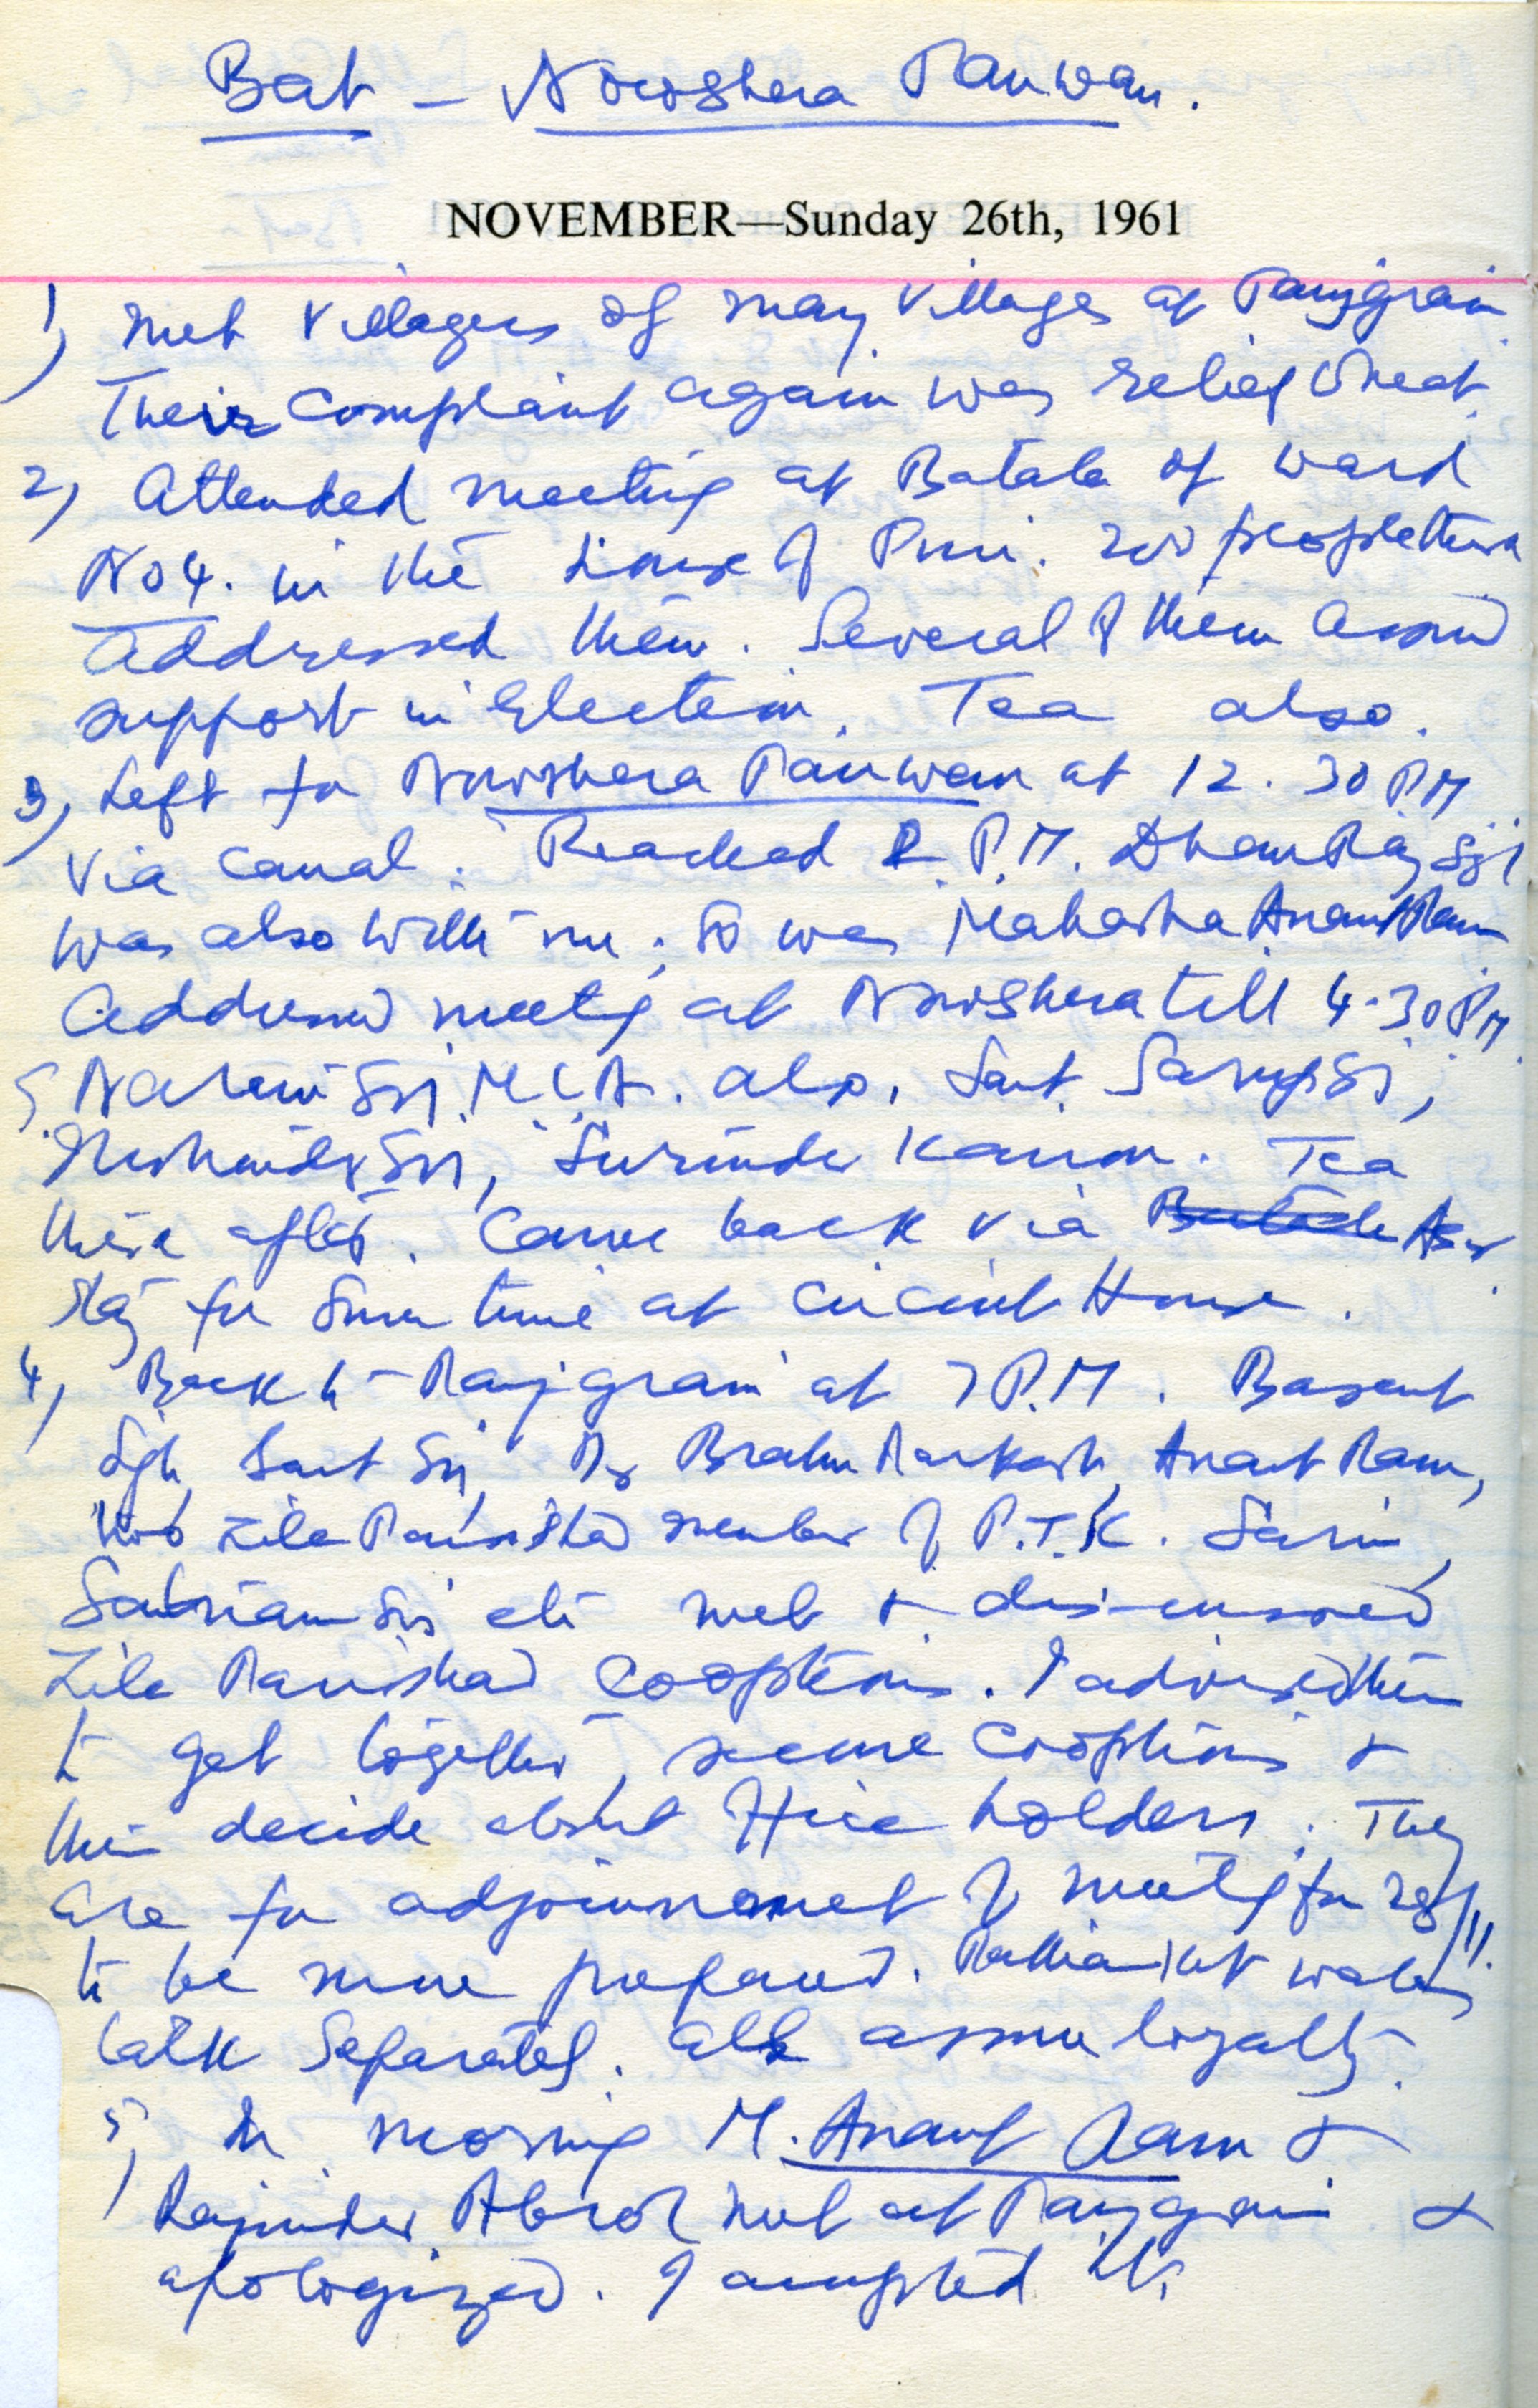 Bat - Nowshera Panwan.
NOVEMBER—Sunday 26th, 1961
1) Met villagers of many villages at Panjgrain
Their complaint again was relief wheat
2) Attended meeting at Batala of ward
No 4. in the house of Puri. 200 people there
Addressed them. Several of them assured
support in Election. Tea also.
3) Left for Nowshera Panwan at 12.30 PM
via canal. Reached 2 P.M. Dhanraj Sgh
was also with me. So was Mahasha Anant Ram
Addressed meeting at Nowshera till 4-30 PM
Narain Sgh M.L.A. also, Sant Sarup Sg,
Sgh, Surinder Kairon. Tea
there after. Came back via Batala Asr
Stay for some time at Circuit House.
4) Back to Panjgrain at 7 P.M. Basant
Sgh, Sant Sg, Dr Brahm Parkash, Anant Ram,
two Zila Parishad member of P.T.K. Sarin,
Satnam Sg etc met & discussed
Zila Parishad cooptions. I advised them
to get together, secure cooptions &
then decide about office holders. They
are for adjournment of meeting for 28/11.
to be more prepared. wale
talk separately. All assure loyalty.
5) In morning M. Anant Ram &
Rajinder Abrol met at Panjgrain &
apologized. I accepted it.